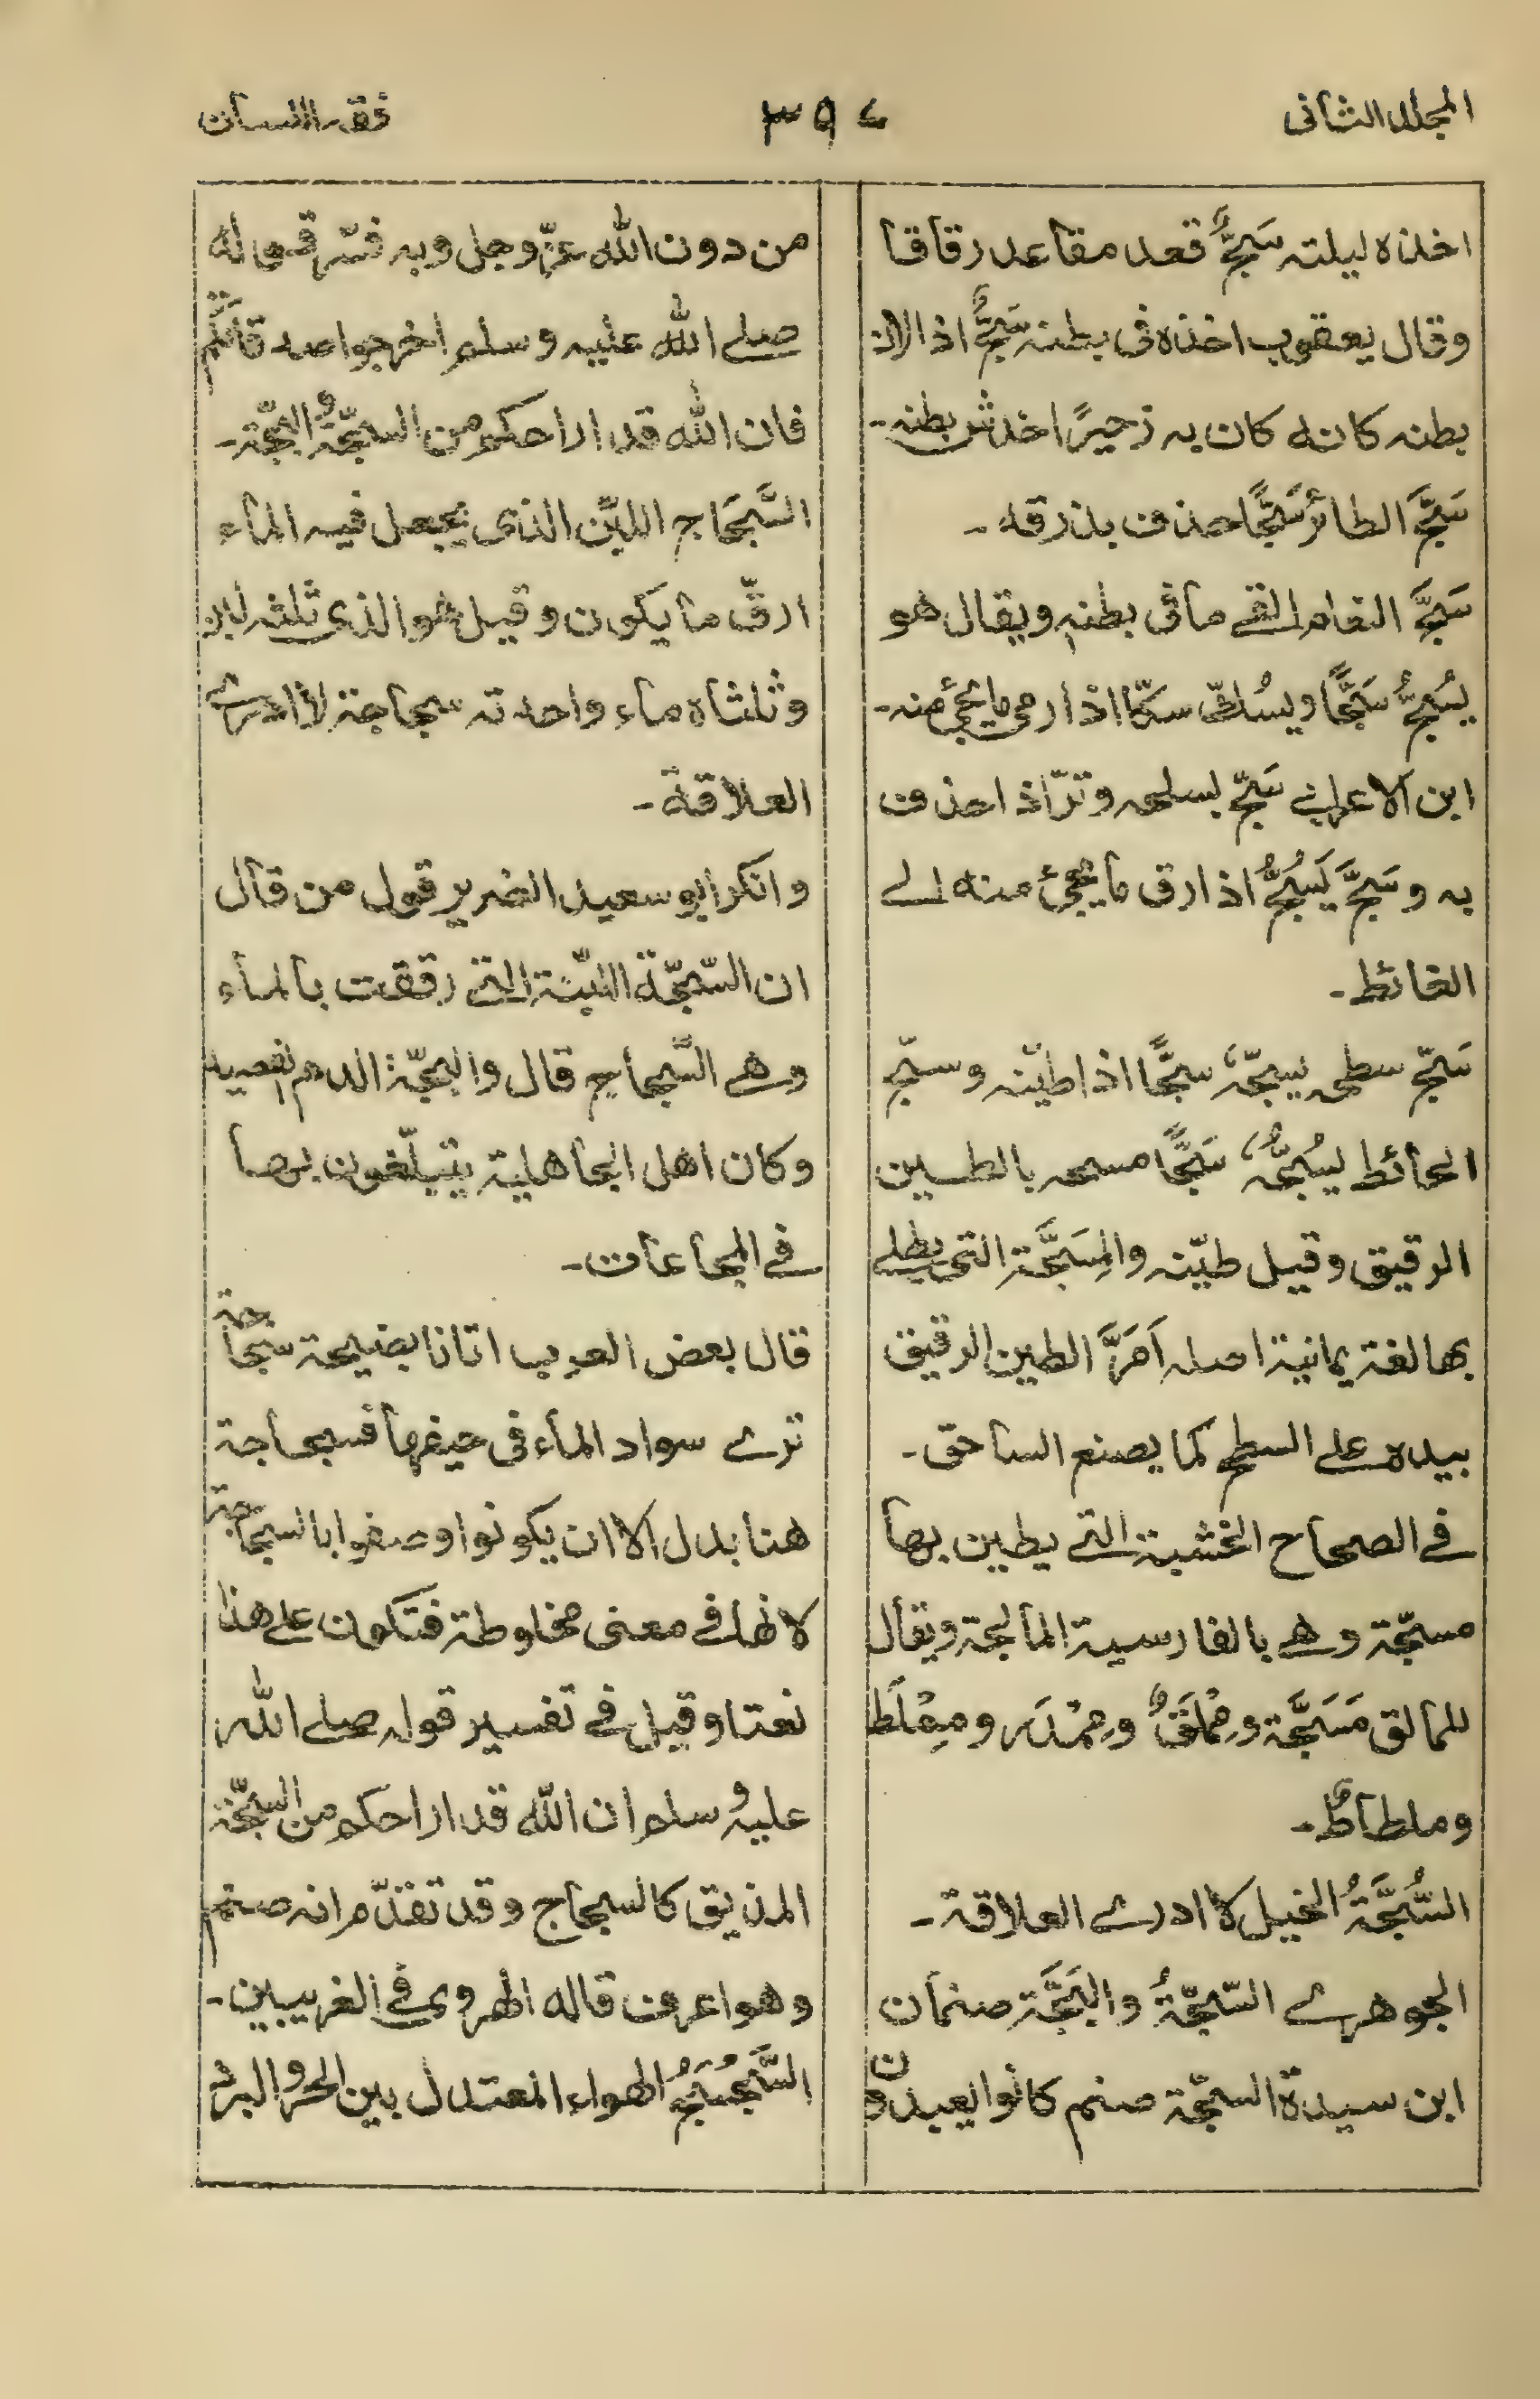 المجلد الثانى
٣٥٤
فقه اللسان
اخذه ليلته سَجٌّ قعد مقاعد رقاقا
وقال يعقوب اخذه فى بطنه سَجٌّ اذا لان
بطنه كانه كان به زحيرًا اخذش بطنه-
سَجَّ الطائر سَجًّا حذف بذرقه-
سَجَّ النعام القے مافى بطنه ويقال هو
يسُجُّ سَجًّا ويسُكّ سكًّا اذا رمى مايجئ منه-
ابن الاعرابے سَجّ بسلحه وترّ اذا حذف
به وسَجَّ يَسُجُّ اذا رق مايجئ منه الے
الغائط-
سَجّ سطحه يسجّه سجًّا اذا طيّنه وسجّ
الحائط يسُجُّه سَجًّا مسحه بالطين
الرقيق وقيل طيّنه والمِسَجَّة التى يطلے
بها لغة يمانية اصله اَمَرَّ الطين الرقيق
بيده علے السطح كما يصنع الساحق-
فے الصحاح الخشبة التے يطين بها
مسجّة وهے بالفارسية المالجة ويقال
للمالق مَسَجَّة ومِمْلَقٌ ومِمْدَر ومِمْلَط
وملطاطٌ-
السُّجَّةُ الخيل لا ادرے العلاقة-
الجوهرے السّجّةُ والبَجَّة صنمان
ابن سيدة السجّة صنم كانوا يعبدون
من دون الله عزّ وجل وبه فسّر قوله
صلے الله عليه وسلم اخرجوا صدقاتكم
فان الله قد اراحكم من السجّةُ والبجّة-
السَّجَاج اللبن الذى يجعل فيه الماء
ارقّ ما يكون وقيل هو الذى ثلثه لبن
وثلثاه ماء واحدته سجاجة لا ادرے
العلاقة-
وانكر ابو سعيد الضرير قول من قال
ان السّجّة اللبنة التے رققت بالماء
وهے السَّجاج قال والبجّة الدم الفصيد
وكان اهل الجاهلية يتبلّغون بها
فے المجاعات-
قال بعض العرب اتانا بضيحة سَجاجة
ترے سواد الماء فى حيفها فسجاجة
هنا بدل الا ان يكونوا وصفوا بالسجاجة
لانها فے معنى مخلوطة فتكون علے هذا
نعتا وقيل فے تفسير قوله صلے الله
عليه وسلم ان الله قد اراحكم من السجّة
المذيق كالسجاج وقد تقدّم انه صنم
وهو اعرف قاله الهروى فے الغريبين-
السَّجْسَجُ الهواء المعتدل بين الحر والبرد